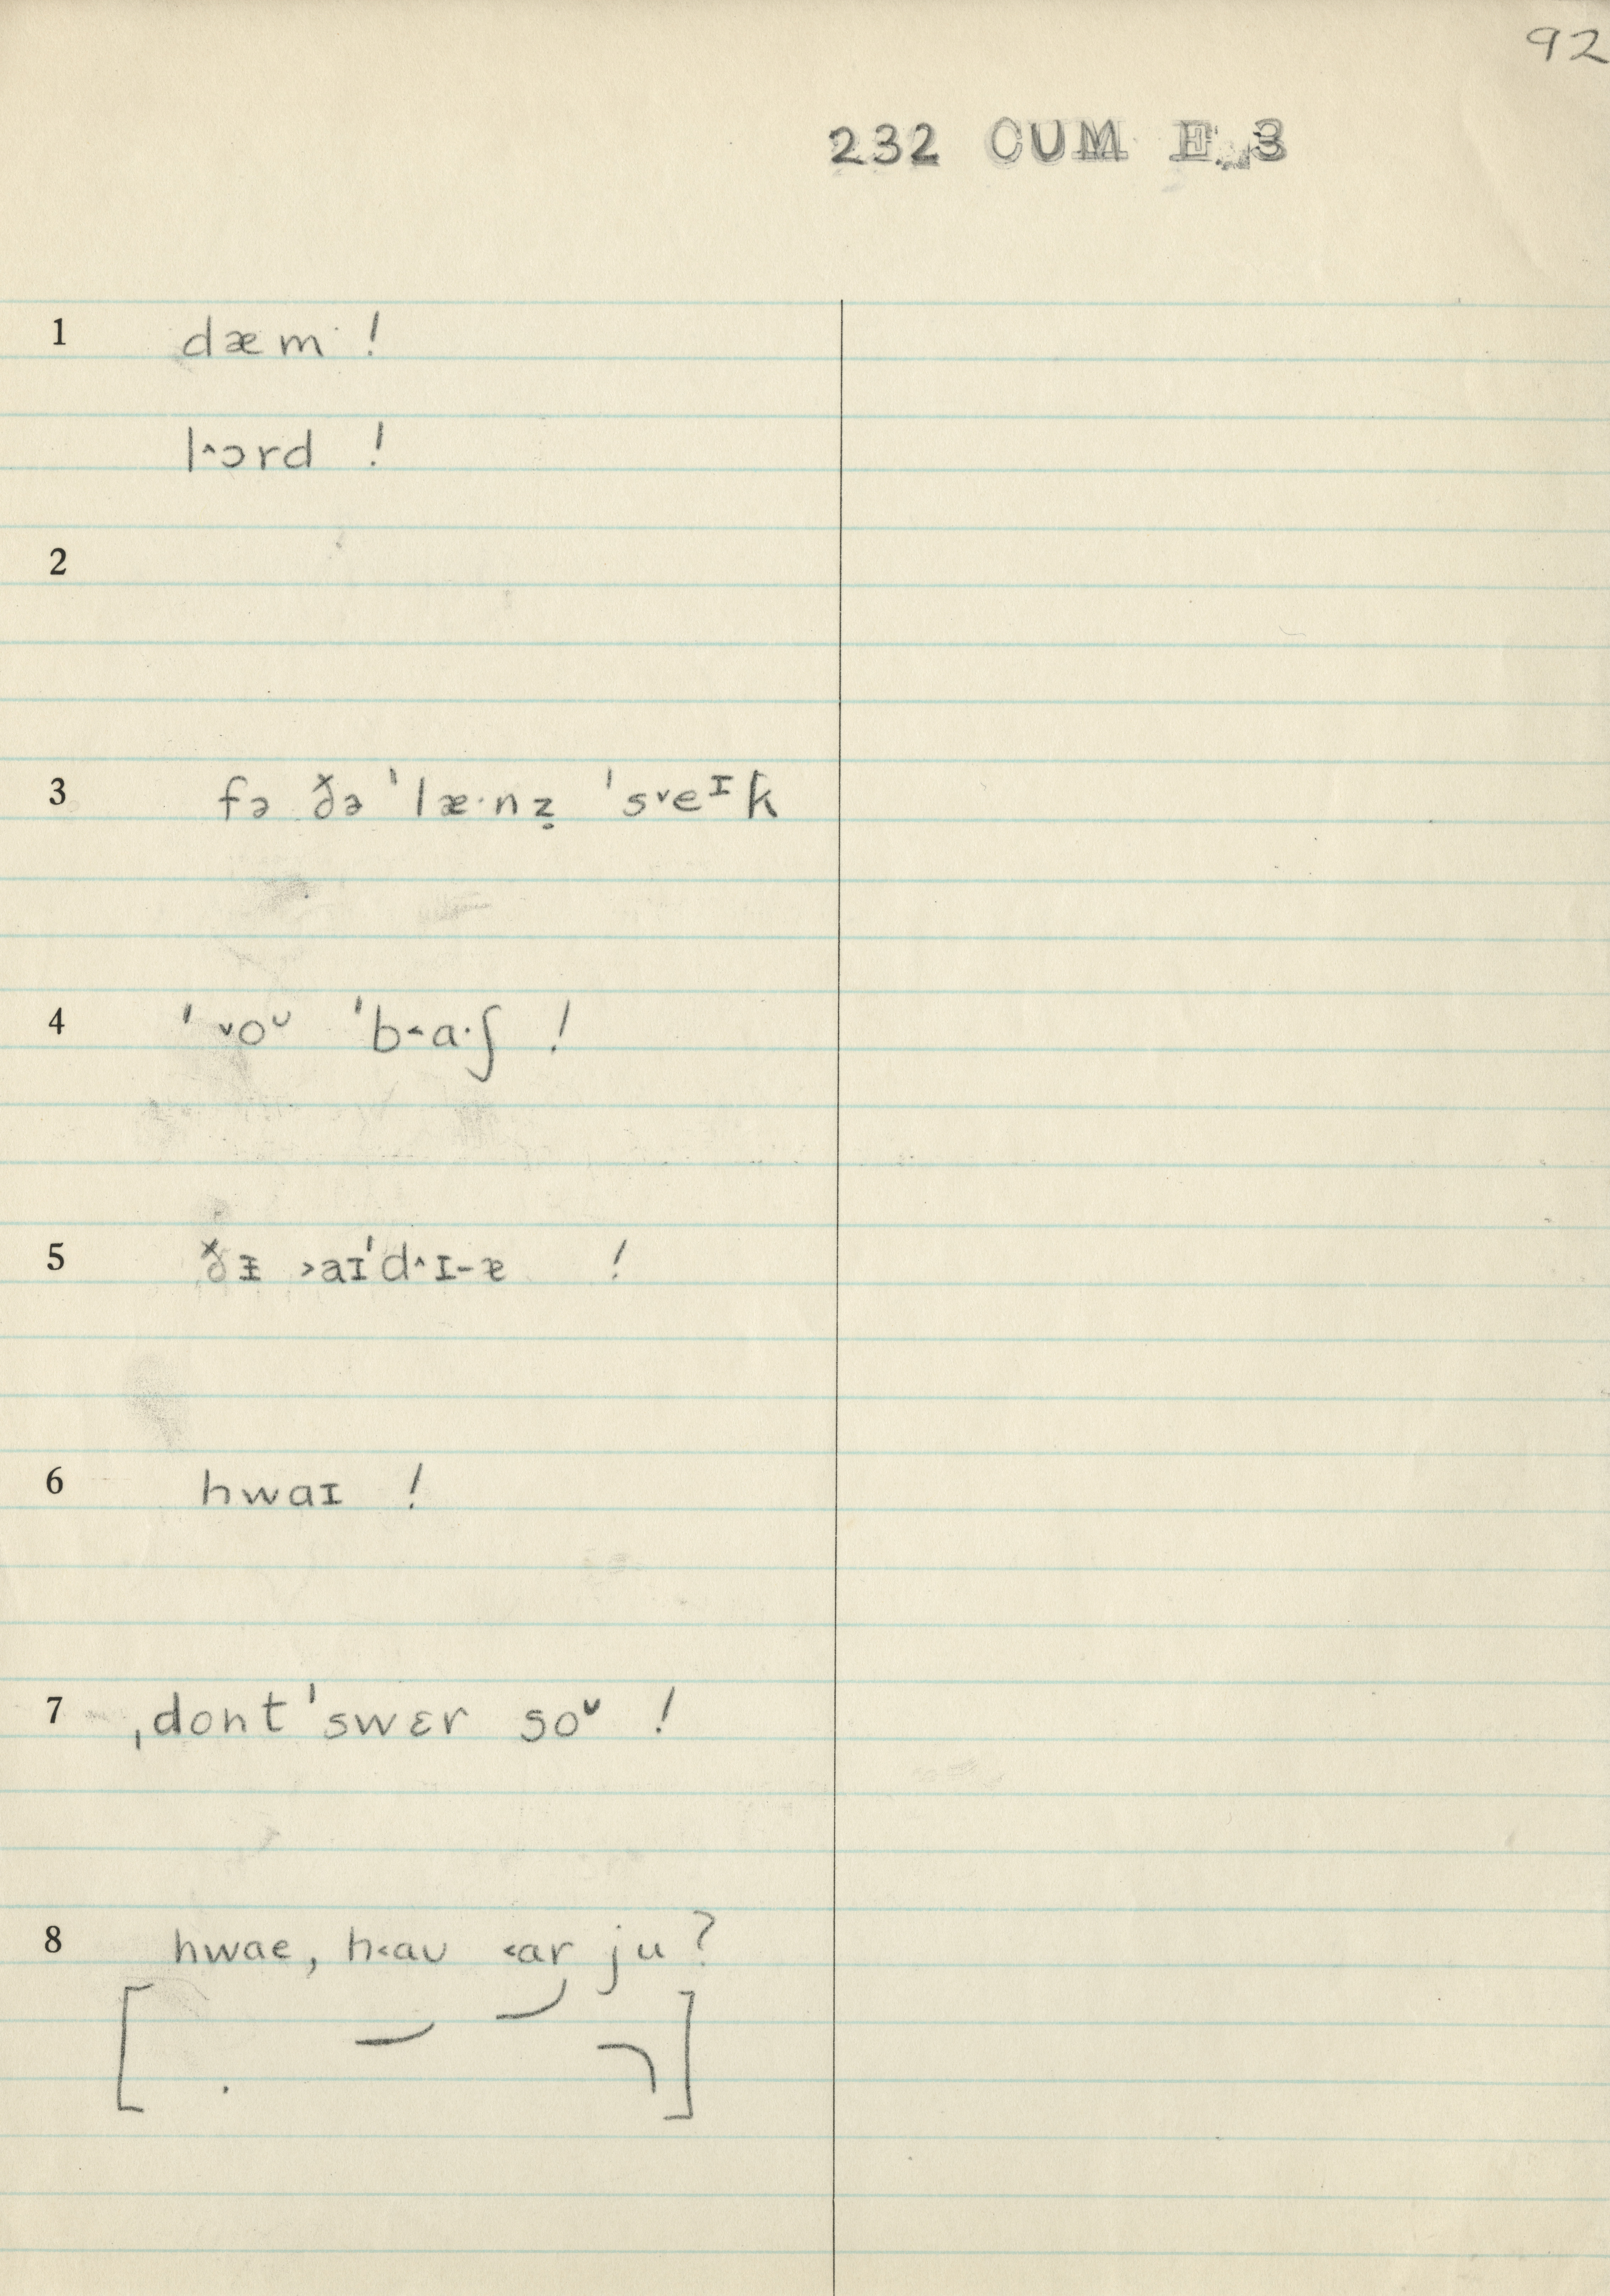 92
232 CUM E 3
1 dæm !
l˄ɔrd !
2
3 fə ðə ˈlæ·nz̥ ˈs˅eᶦk
4 ˈ˅oᶷ ˈb˂a·ʃ !
5 ðᵻ ˃aɪˈd˄ɪ-ɐ !
6 hwaɪ !
7 ˌdont ˈswɛr soᶷ !
8 hwae, h˂aʊ ˂ar ju ?